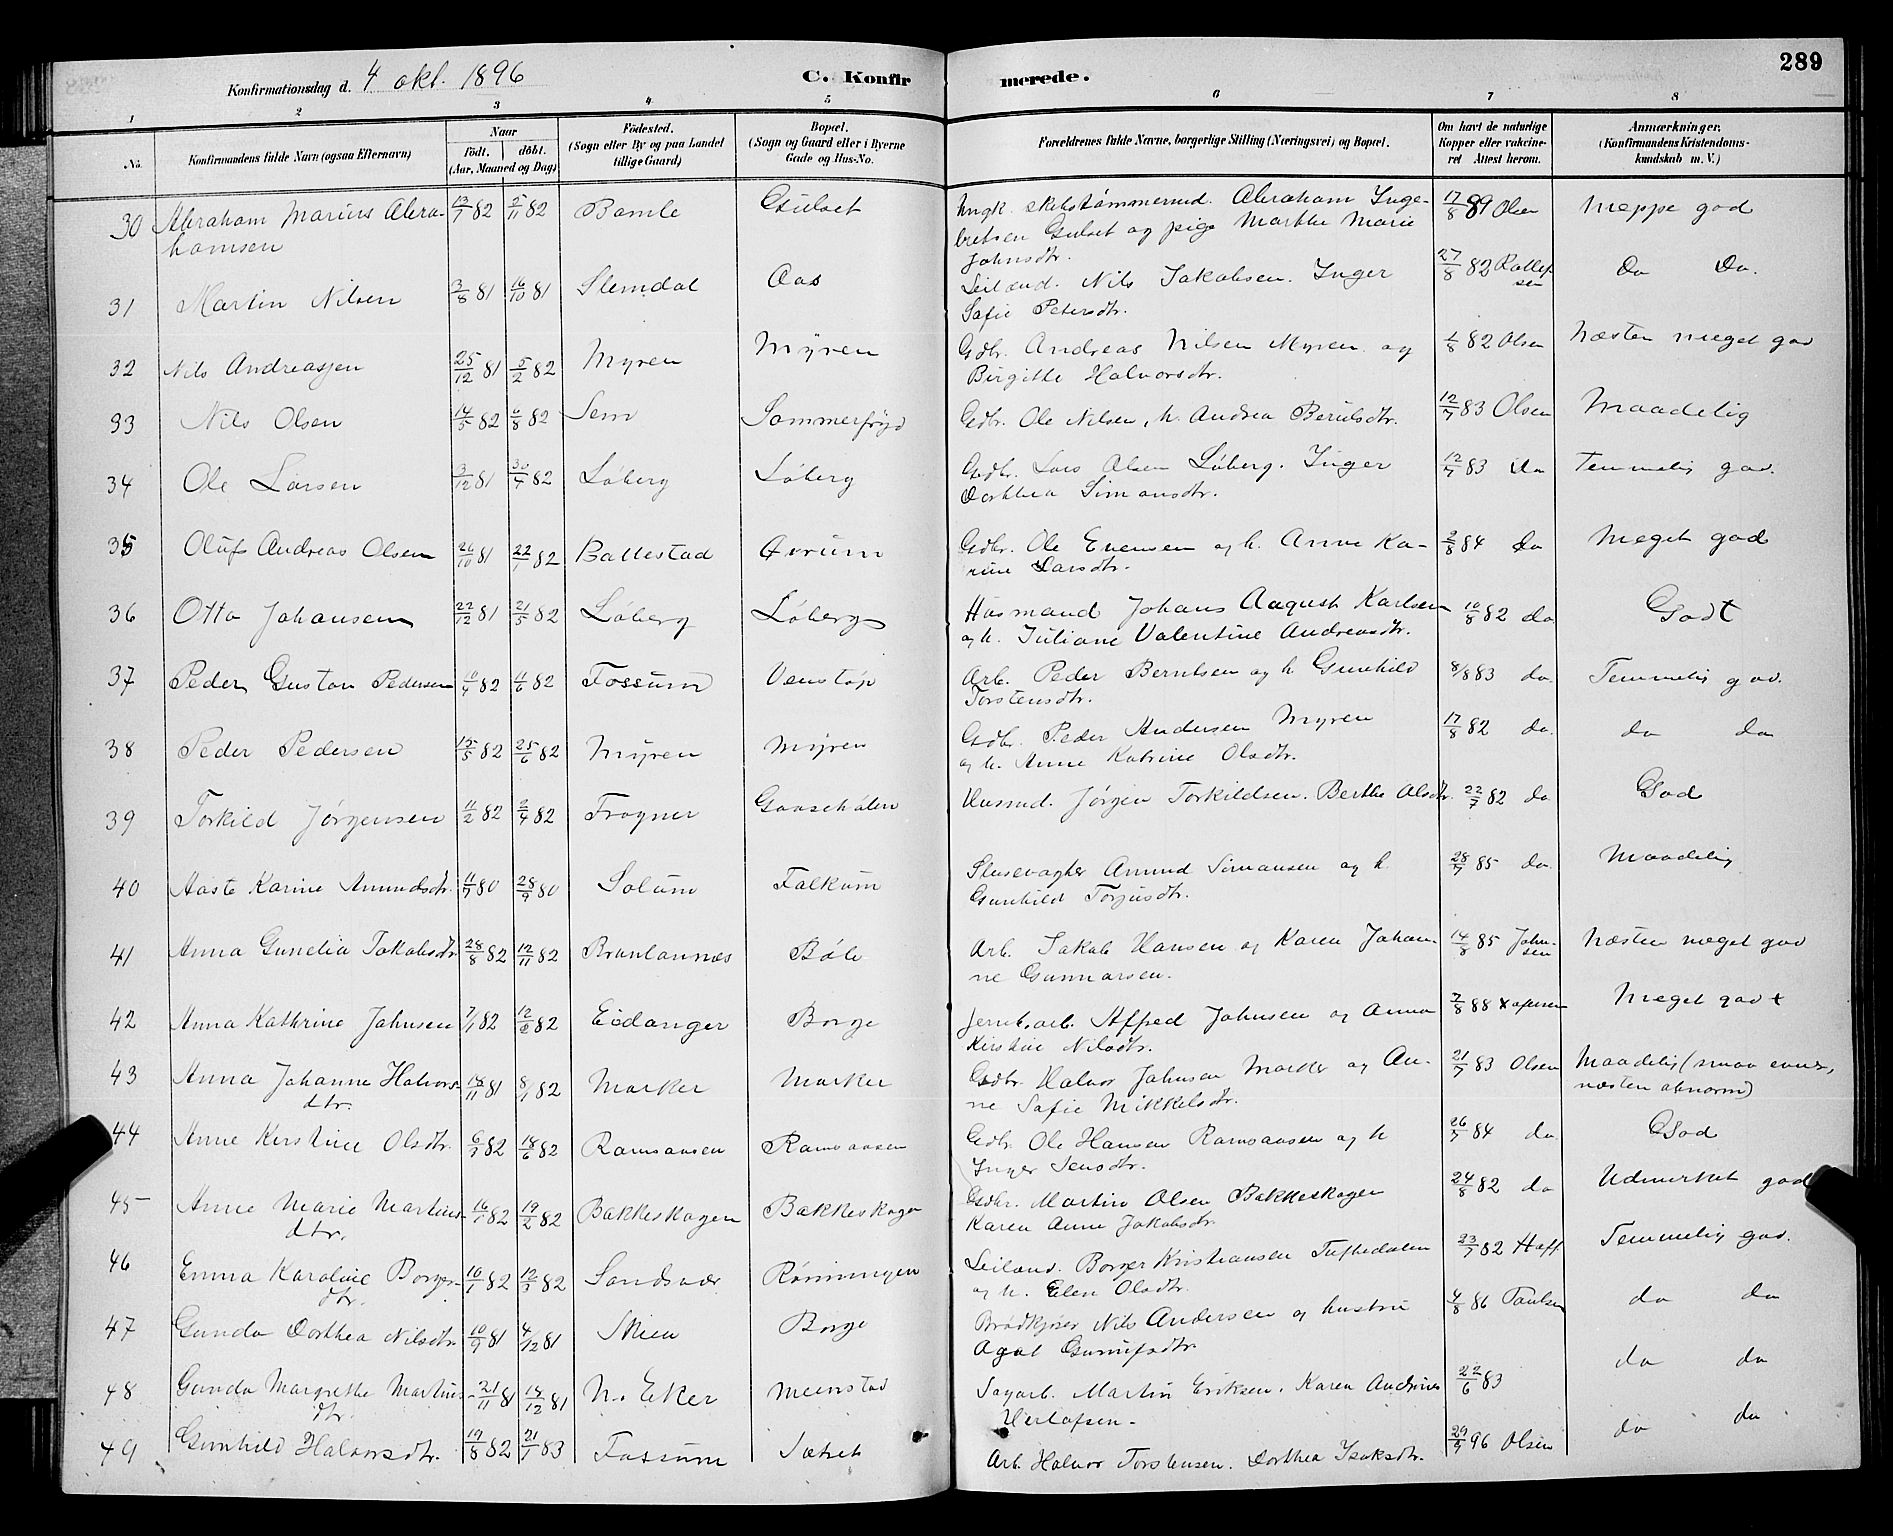 289
Konfirmationsdag d. 4 okt. 1896 C. Konfirmerede.
1 2 3 4 5 6 7 8
No. Konfirmandens fulde Navn (ogsaa Efternavn) Naar født. døbt. (Aar, Maaned og Dag) Födested. (Sogn eller By og paa Landet tillige Gaard) Bopæl. (Sogn og Gaard eller i Byerne Gade og Hus-No. Forældrenes fulde Navne, borgerlige Stilling (Næringsvei) og Bopæl. Om havt de naturlige Kopper eller vaccineret Attest herom. Anmærkninger. (Konfirmandens Kristendomskundskab m. V.)
30 Abraham Marius Abra- 13/7 82 5/11 82 Bamle Gulset Ungk. Abraham Inge- 17/8 89 Olsen Neppe god
hamsen bretsen Gulset og pige Marthe Marie
Johnsdtr.
31 Martin Nilsen 3/8 81 16/10 81 Slemdal Aas Leilænd. Nils Jakobsen. Inger 27/8 82 Rollef Do Do.
Safie Petersdtr. sen
32 Nils Andreassen 25/12 81 5/2 82 Myren Myren Gdbr. Andreas Nilsen Myren og 82 Olsen Næsten meget god
Birgitte Halvorsdtr.
33 Nils Olsen 14/5 82 6/8 82 Sem Sommerfryd Gdbr. Ole Nilsen, h. Andrea Berulsdtr. 12/7 83 Olsen Maadelig
34 Ole Larsen 3/12 81 30/4 82 Løberg Løberg Gdbr. Lars Olsen Løberg. Inger 12/7 83 do Temmelig god.
Dorthea Simonsdtr.
35 Oluf Andreas Olsen 26/10 81 22/1 82 Ballestad Gdbr. Ole Evensen og h. Anne Ka- 2/8 84 do Meget god
rine Larsdtr.
36 Otto Johansen 22/12 81 21/5 82 Løberg Løberg Husmand Johans August Karlsen 10/8 82 do Godt
og h. Juliane Valentine Andreasdtr.
37 Peder Gustav Pedersen 11/4 82 11/6 82 Fossum Venstøp Arb. Peder Berntsen og h Gunhild 8/8 83 do. Temmelig god.
Torstensdtr.
38 Peder Pedersen 15/5 82 25/6 82 Myren Myren Gdbr. Peder Andersen Myren 17/8 82 do. do do
og h. Anne Katrine Olsdtr.
39 Torkild Jørgensen 11/2 82 2/4 82 Frogner Gaasehølen Husmd. Jørgen Torkildsen. Berthe Olsdtr. 22/7 82 do God
40 Aaste Karine Amundsdtr. 11/7 80 28/9 80 Solum Falkum Slusevagter Amund Simonsen og h 28/7 85 do. Maadelig
Gunhild Torjusdtr.
41 Anna Gunelia Jakobsdtr 28/8 82 12/11 82 Brunlannæs Bøle Arb. Jakob Hansen og Karen Johan- 14/8 85 John- Næsten meget god
ne Gunnarsen. sen
42 Anna Kathrine Johnsen 7/1 82 12/2 82 Eidanger Borge Jernb.arb. Alfred Johnsen og Anna 7/8 88 Meget godt
Kirstine Nilsdtr.
43 Anna Johanne Halvors- 18/11 81 8/1 82 Marker Marker Gdbr. Halvor Johnsen Marker og An- 21/7 83 Olsen Maadelig (smaa evner,
dtr. ne Safie Mikkelsdtr. næsten abnorm)
44 Anne Kirstine Olsdtr. 6/3 82 18/6 82 Ramsaasen Ramsaasen Gdbr. Ole Hansen Ramsaasen og h 26/7 84 do. God
Inger Jensdtr.
45 Anne Marie Martins- 16/1 82 19/2 82 Bakkeskogen Bakkeskogen Gdbr. Martin Olsen Bakkeskogen 24/8 82 do Udmerket god
dtr. Karen Anne Jakobsdtr.
46 Emma Karoline Borger- 10/1 82 12/3 82 Sandsvær Rønningen Leilænd. Borger Kristiansen Tuftedalen 23/7 82 Hoff Temmelig god.
dtr. og h. Elen Olsdtr.
47 Gunda Dorthea Nilsdtr. 10/9 81 4/12 81 Skien Borge Brødkjører Nils Andersen og hustru 4/8 86 Paulsen do do
Agat
48 Gunda Margrethe Martins- 21/11 81 18/12 81 N. Eker Menstad Sagarb. Martin Eriksen. Karen Andrine 22/6 83 do do
dtr. Herlofsen -
49 Gunhild Halvorsdtr. 19/8 82 21/1 83 Fossum Sætret Arb. Halvor Torstensen. Dorthea Isaksdtr. 29/7 96 Olsen do do